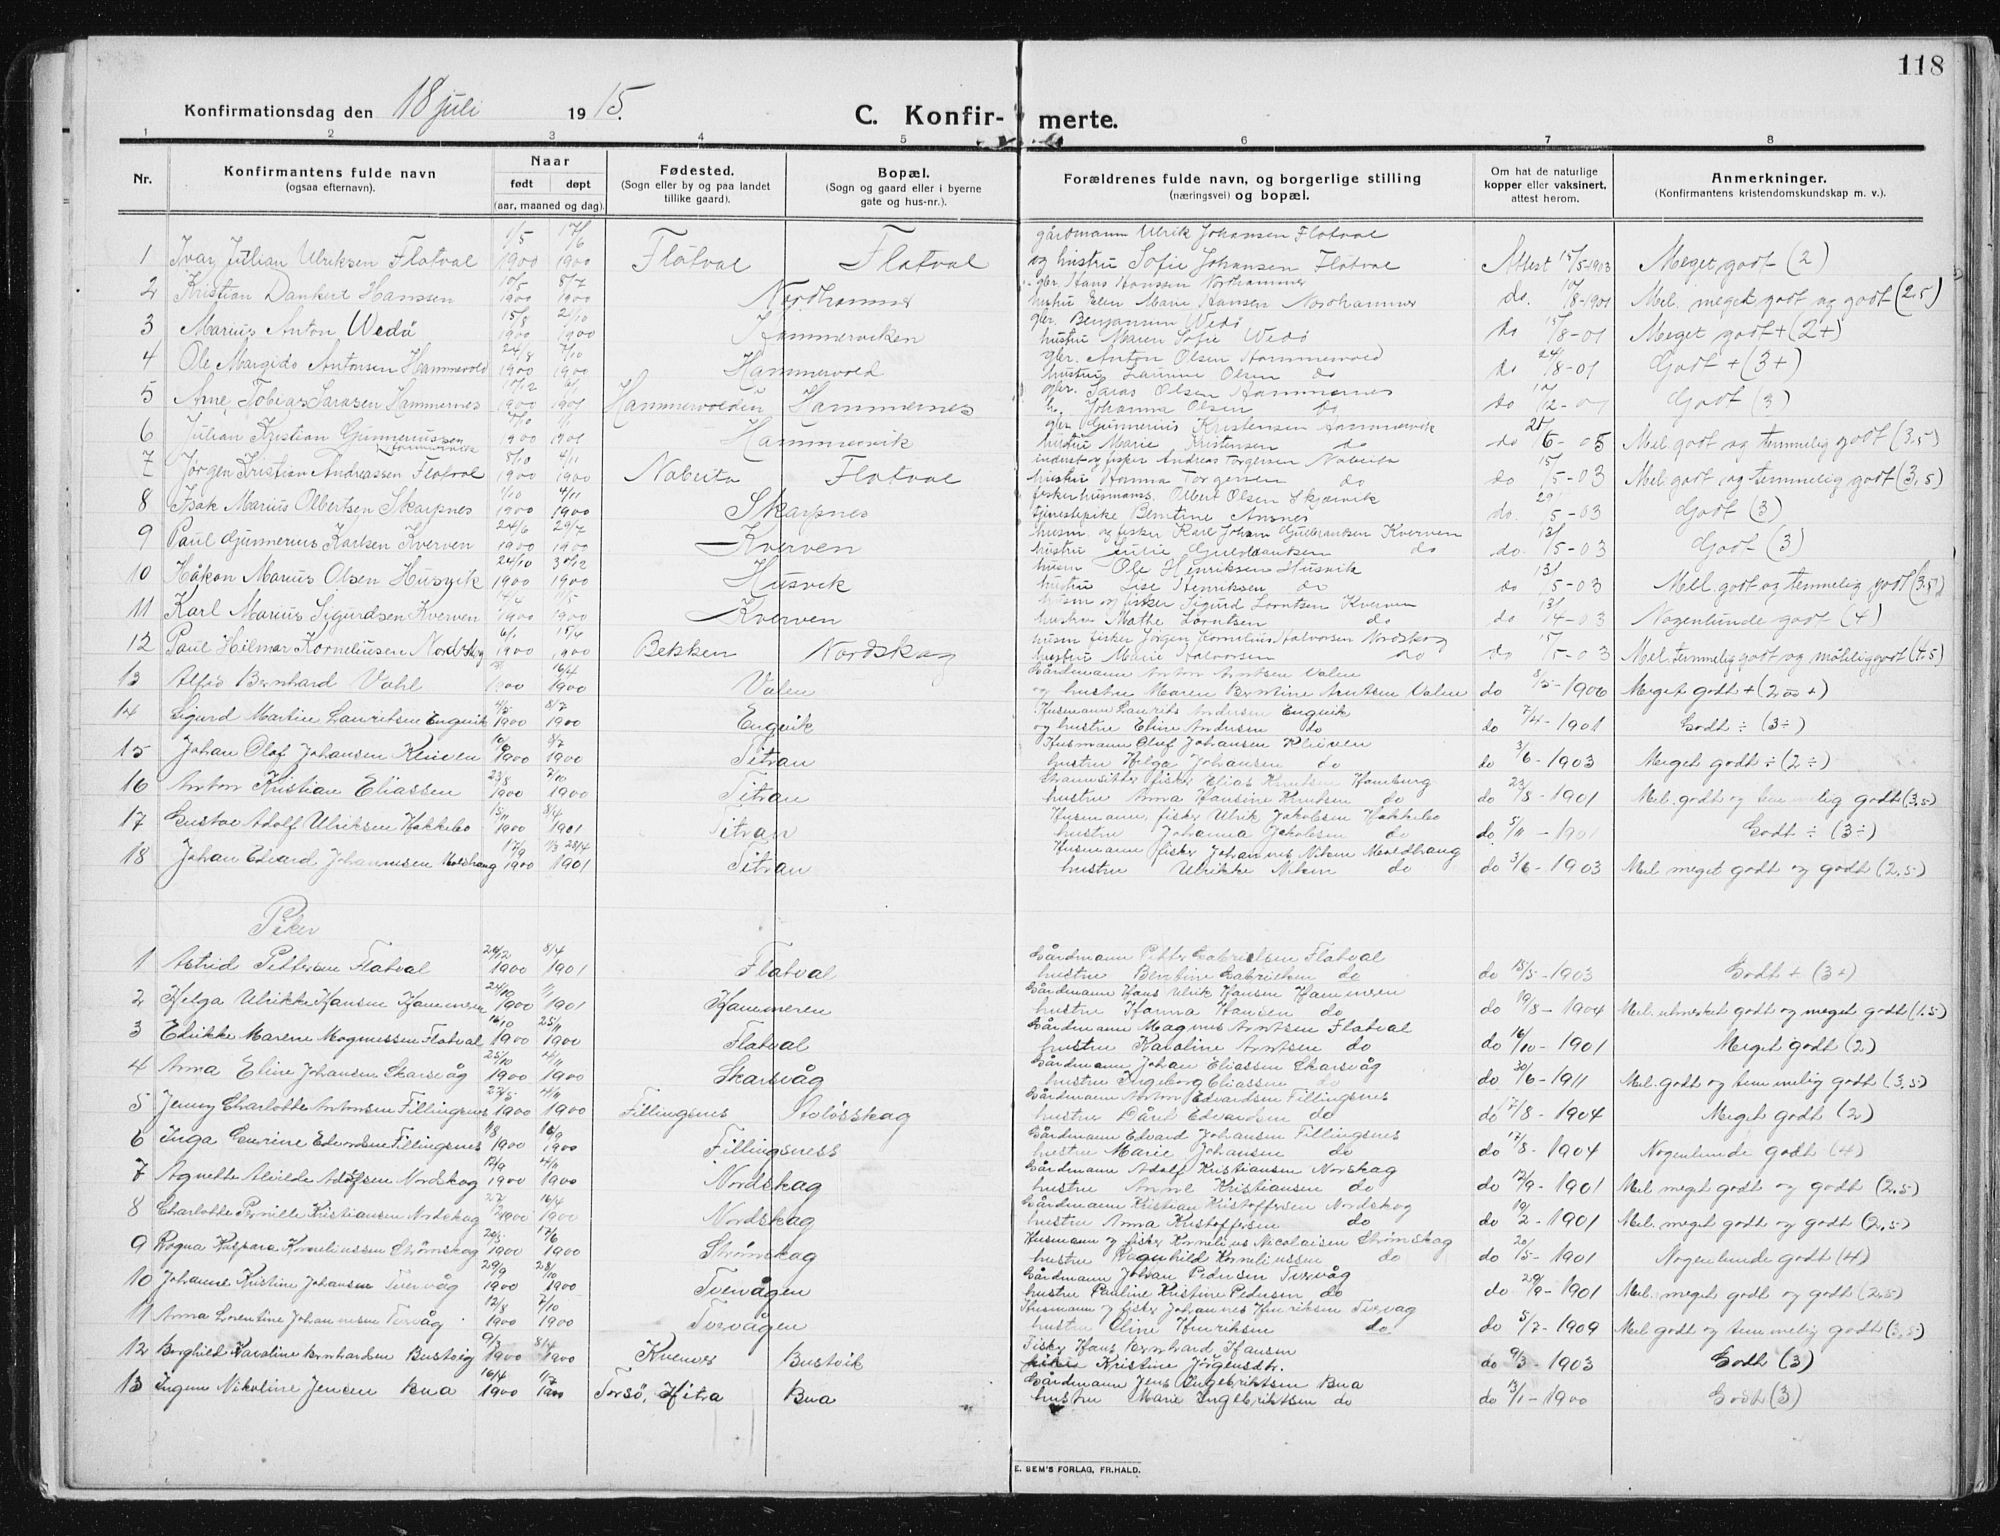 118
Konfirmationsdag den 18 juli 1915. C. Konfir- merte.
1 2 3 4 5 6 7 8
Nr. Konfirmantens fulde navn (ogsaa efternavn). Naar født døpt (aar, maaned og dag). Fødested. (Sogn eller by og paa landet tillike gaard). Bopæl. (Sogn og gaard eller i byerne gate og hus-nr.). Forældrenes fulde navn, og borgerlige stilling (næringsvei) og bopæl. Om hat de naturlige kopper eller vaksinert, attest herom. Anmerkninger. (Konfirmantens kristendomskundskap m. v.).
gårdmann Ulrik Johansen Flatval
1 Ivar Julian Ulriksen Flatval 1/5 1900 17/6 1900 Flatval Flatval og hustru Sofie Johansen Flatval Attest 15/5-1903 Meget godt (2)
gbr. Hans Hanssen Nordhammer
2 Kristian Dankert Hanssen 10/5 1900 8/7 1900 Nordhammer hustru Elen Marie Hansen Nordhammer do. /8-1901 Mel. meget godt og godt (2,5)
gbr. Benjamin Wedø
3 Marius Anton Wedø 15/8 1900 21/10 1900 Hammerviken hustru Maren Sofie Wedø do 15/8-01 Meget godt + (2+)
gbr. Anton Olsen Hammervold
4 Ole Margido Antonsen Hammervold 24/8 1900 7/10 1900 Hammervold hustru Laurine Olsen do do 24/8-01 Godt + (3+)
gbr. Saras Olsen Hammernes
5 Arne Tobias Sarasen Hammernes 10/12 1900 1901 Hammervolden Hammernes h. Johanna Olsen do do /12-01 Godt (3)
gbr. Gunnerius Kristensen Hammervik
6 Julian Kristian Gunneriussen Hammervik 1900 1901 Hammervik hustru Marie Kristensen do do 25/6-05 Mel. godt og temmelig godt (3,5)
inderst og fisker Andreas Torgersen Nabeita
7 Jørgen Kristian Andreassen Flatval 8/10 1900 4/11 1900 Nabeita Flatval hustru Hanna Torgersen do do 15/5-03 Mel. godt og temmelig godt (3,5)
fisker husmanns. Olbert Olsen Skjærvik
8 Isak Marius Olbertsen Skarpnes 1/10 1900 4/11 1900 Skarpnes tjenestepike Berntine Ansnes do. 29/5-03 Godt (3)
husm. og fisker Karl Johan Gulbrantsen Kverven
9 Paul Gunnerius Karlsen Kverven 24/6 1900 29/7 1900 Kverven hustru Julie Gulbrantsen do do 13/5-03 Godt (3)
husm Ole Henriksen Husvik
10 Håkon Marius Olsen Husvik 24/10 1900 30/12 1900 Husvik hustru Lise Henriksen do do 13/5-03 Mel. godt og temmelig godt (3,5)
husm og fisker Sigurd Lorntsen Kverven
11 Karl Marius Sigurdsen Kverven 1900 1900 Kverven hustru Mathe Lorntsen do do 13/4-03 Nogenlunde godt (4)
husm fisker Jørgen Kornelius Halvorsen Nordskag
12 Paul Hilmar Korneliusen Nordskag 6/1 1900 15/4 1900 Bekken Nordskag hustru Marie Halvorsen do do 15/5-03 Mel. temmelig godt og måtelig godt (4,5)
Gårdmann Anton Arntsen Valen
13 Alfred Bernhard Vahl 1900 16/4 1900 Valen og hustru Maren Berntine Arntsen Valen do 8/5-1906 Meget godt + (2 +)
Husmann Laurits Andersen Engvik
14 Sigurd Martin Lauritsen Engvik 4/5 1900 8/7 1900 Engvik og hustru Eline Andersen do do 7/4-1901 Godt ÷ (3÷)
Husmann Oluf Johansen Kleiven
15 Johan Olaf Johansen Kleiven 1900 8/7 1900 Titran hustru Helga Johansen do do 3/6-1903 Meget godt ÷ (2÷)
Strannsitter fisker Elias Knutsen Hamburg
16 Anton Kristian Eliassen 23/8 1900 7/10 1900 Titran hustru Anna Hansine Knutsen do do 23/8-1901 Mel. godt og temmelig godt (3,5)
Husmann, fisker Ulrik Jakobsen Hakkebo
17 Gustav Adolf Ulriksen Hakkebo 15/11 1900 8/4 1901 Titran hustru Johanna Jakobsen do do 5/11-1901 Godt ÷ (3÷)
Husmann fisker Johannes Nilsen
18 Johan Edvard Johannesen 17/9 1900 1/3 28/4 1901 Titran hustru Ulrikke Nilsen do do 3/6-1903 Mel. meget godt og godt (2,5)
Piker
Gårdmann Petter Gabrielsen Flatval
1 Astrid Pettersen Flatval 24/12 1900 8/4 1901 Flatval hustru Berntine Gabrielsen do do 15/5-1903 Godt + (3+)
Gårdmann Hans Ulrik Hansen Hammeren
2 Helga Ulrikke Hansen Hammeren 24/10 1900 1/1 1901 Hammeren hustru Hanna Hansen do do 19/8-1904 Mel. utmerket godt og meget godt (1,5)
Gårdmann Magnus Arntsen Flatval
3 Edrikke Marene Magnussen Flatval 16/10 1900 25/11 1900 Flatval hustru Karoline Arntsen do do 16/10-1901 Meget godt (2)
Gårdmann Johan Eliassen Skarsvåg
4 Anna Eline Johansen Skarsvåg 25/10 1900 4/11 1900 Skarsvåg hustru Ingeborg Eliassen do do 30/6-1911 Mel. godt og temmelig godt (3,5)
Gårdmann Anton Edvardsen Fillingsnes
5 Jenny Charlotte Antonsen Fillingsnes 27/5 1900 4/11 1900 Fillingsnes Stolösskag hustru Dåret Edvardsen do do 17/8-1904 Meget godt (2)
Gårdmann Edvard Johansen Fillingsnes
6 Inga Gurine Edvardsen Fillingsnes 1/8 1900 16/9 1900 Fillingsness hustru Marie Johansen do do 17/8-1904 Nogenlunde godt (4)
Gårdmann Adolf Kristiansen Norskag
7 Agnethe Alvilde Adolfsen Nordskag 12/9 1900 4/11 1900 Nordskag hustru Anne Kristiansen do do 12/9-1901 Mel meget godt og godt (2,5)
Gårdmann Kristian Kristoffersen Nordskog
8 Charlotte Pernille Kristiansen Nordskag 1900 16/4 1900 Nordskag hustru Anna Kristoffersen do do 19/2-1901 Mel. meget godt og godt (2,5)
Husmann og fisker Kornelius Nicolaisen Strømskag
9 Ragna Kaspara Korneliussen Strømskag 20/5 1900 17/6 1900 Strømskag hustru Ragnhild Korneliussen do do 20/5-1901 Nogenlunde godt (4)
Gårdmann Johan Pedersen Tuvåg
10 Johanne Kristine Johansen Tuvåg 29/9 1900 28/10 1900 Tuvågen hustru Pauline Kristine Pedersen do do 29/9-1901 Mel. meget godt og godt (2,5)
Husmann og fisker Johannes Henriksen Tuvvag
11 Anna Lorentine Johannesen Tuvåg 12/8 1900 7/10 1900 Tuvågen hustru Eline Henriksen do do 5/7-1909 Mel godt og temmelig godt (3,5)
Fisker Hans Bernhard Hansen
12 Borghild Karoline Bernhardsen Bustvig 9/3 1900 8/4 1900 Bustvik Kristine Jørgensdtr. do 9/3-1903 Godt (3)
Gårdmann Jens Ingebriktsen Bua
13 Nikoline Jensen Bua 16/4 1900 1/7 1900 Torsö, Hitra Bua hustru Marie Ingebriktsen do do 13/1-1900 Godt (3)
E. SEM'S FORLAG, FR.HALD.